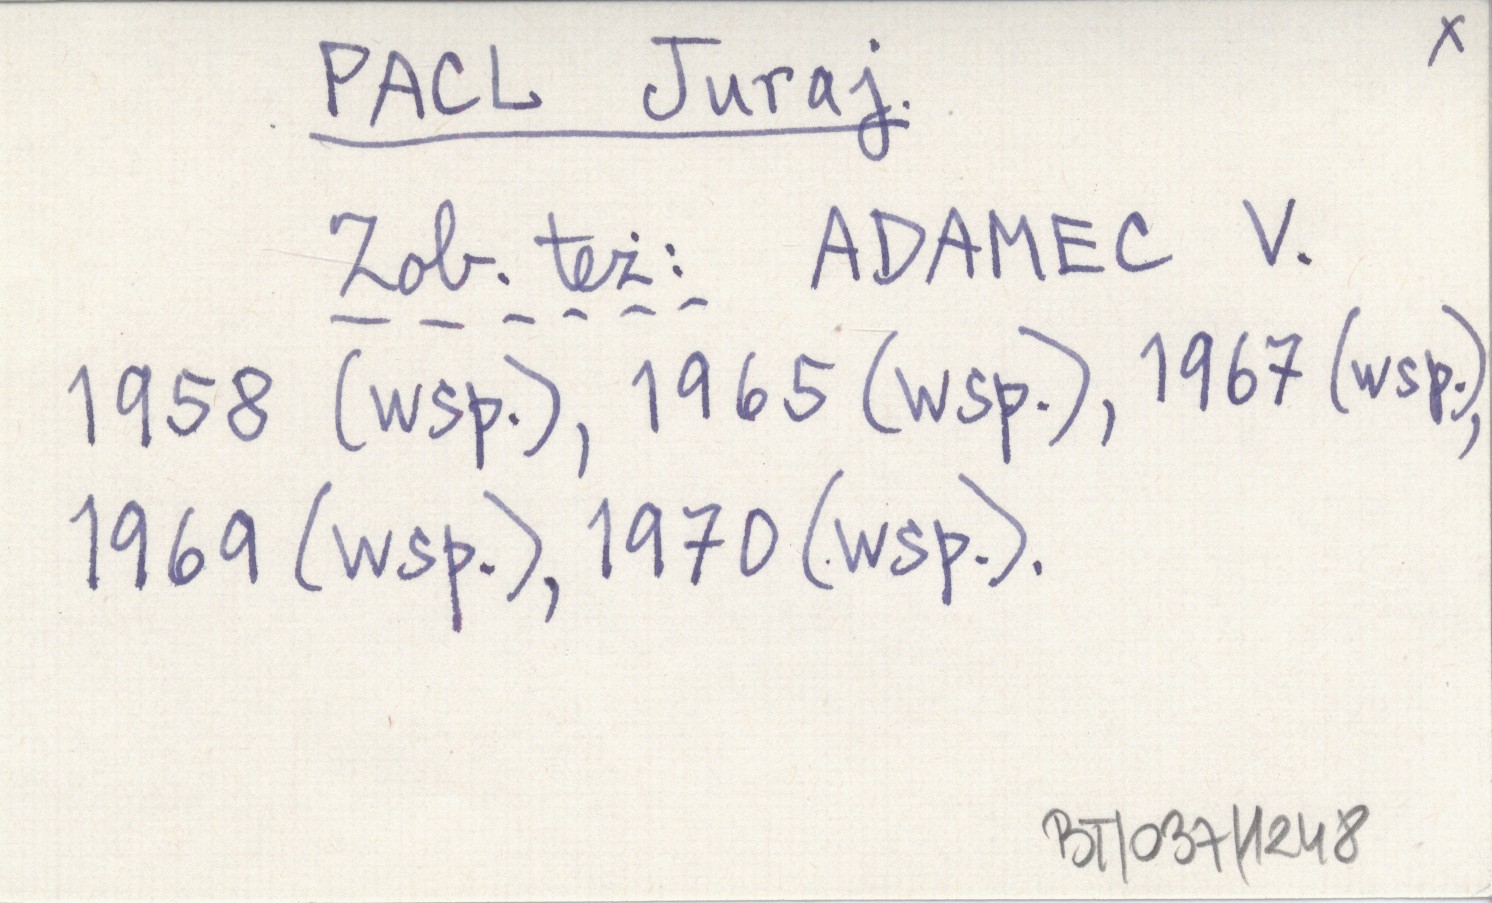 x
PACL Juraj.
Zob. też: ADAMEC V.
1958 (wsp.), 1965 (wsp.), 1967 (wsp.),
1969 (wsp.), 1970 (wsp.).
BT/037/1248